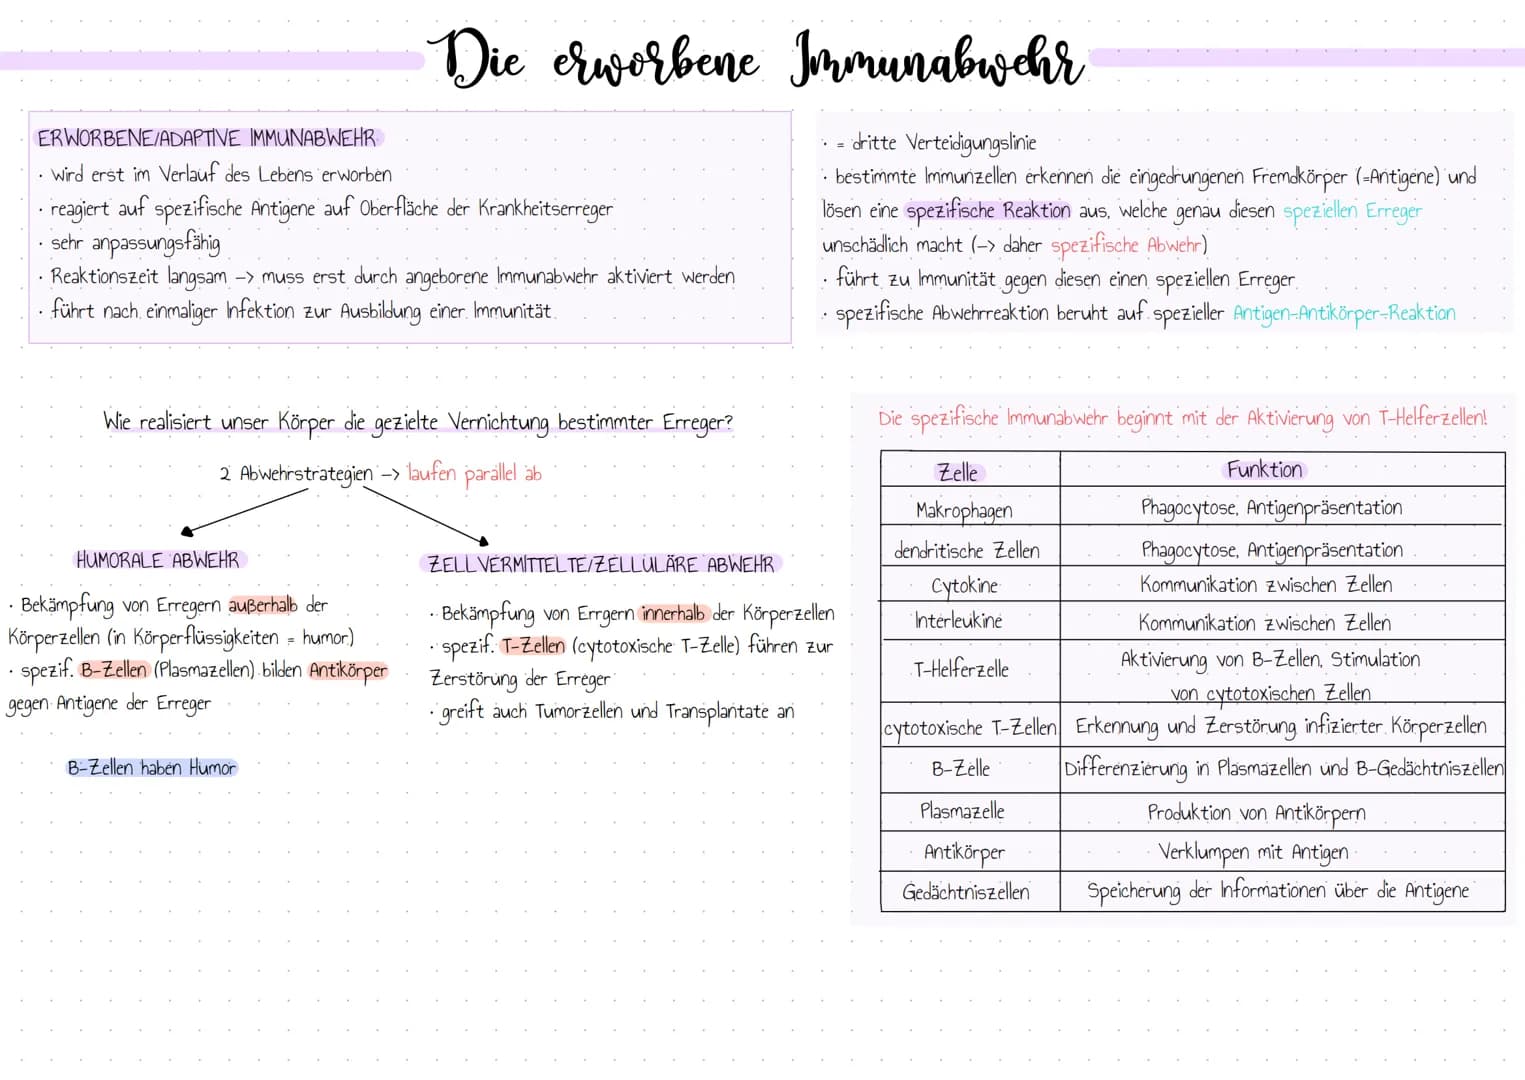 Die erworbene Immunabwehr
ERWORBENE/ADAPTIVE IMMUNABWEHR
· wird erst im Verlauf des Lebens erworben
· reagiert auf spezifische Antigene auf Oberfläche der Krankheitserreger
· sehr anpassungsfähig
· Reaktionszeit langsam -> muss erst durch angeborene Immunabwehr aktiviert werden
· führt nach einmaliger Infektion zur Ausbildung einer Immunität
· = dritte Verteidigungslinie
· bestimmte Immunzellen erkennen die eingedrungenen Fremdkörper (=Antigene) und
lösen eine spezifische Reaktion aus, welche genau diesen speziellen Erreger
unschädlich macht (-> daher spezifische Abwehr)
· führt zu Immunität gegen diesen einen speziellen Erreger
· spezifische Abwehrreaktion beruht auf spezieller Antigen-Antikörper-Reaktion
Wie realisiert unser Körper die gezielte Vernichtung bestimmter Erreger?
2 Abwehrstrategien -> laufen parallel ab
HUMORALE ABWEHR
· Bekämpfung von Erregern außerhalb der
Körperzellen (in Körperflüssigkeiten = humor)
· spezif. B-Zellen (Plasmazellen) bilden Antikörper
gegen Antigene der Erreger
B-Zellen haben Humor
ZELLVERMITTELTE/ZELLULÄRE ABWEHR
· Bekämpfung von Errgern innerhalb der Körperzellen
· spezif. T-Zellen (cytotoxische T-Zelle) führen zur
Zerstörung der Erreger
· greift auch Tumorzellen und Transplantate an
Die spezifische Immunabwehr beginnt mit der Aktivierung von T-Helferzellen!
Zelle Funktion
Makrophagen Phagocytose, Antigenpräsentation
dendritische Zellen Phagocytose, Antigenpräsentation
Cytokine Kommunikation zwischen Zellen
Interleukine Kommunikation zwischen Zellen
T-Helferzelle Aktivierung von B-Zellen, Stimulation
von cytotoxischen Zellen
cytotoxische T-Zellen Erkennung und Zerstörung infizierter Körperzellen
B-Zelle Differenzierung in Plasmazellen und B-Gedächtniszellen
Plasmazelle Produktion von Antikörpern
Antikörper Verklumpen mit Antigen
Gedächtniszellen Speicherung der Informationen über die Antigene